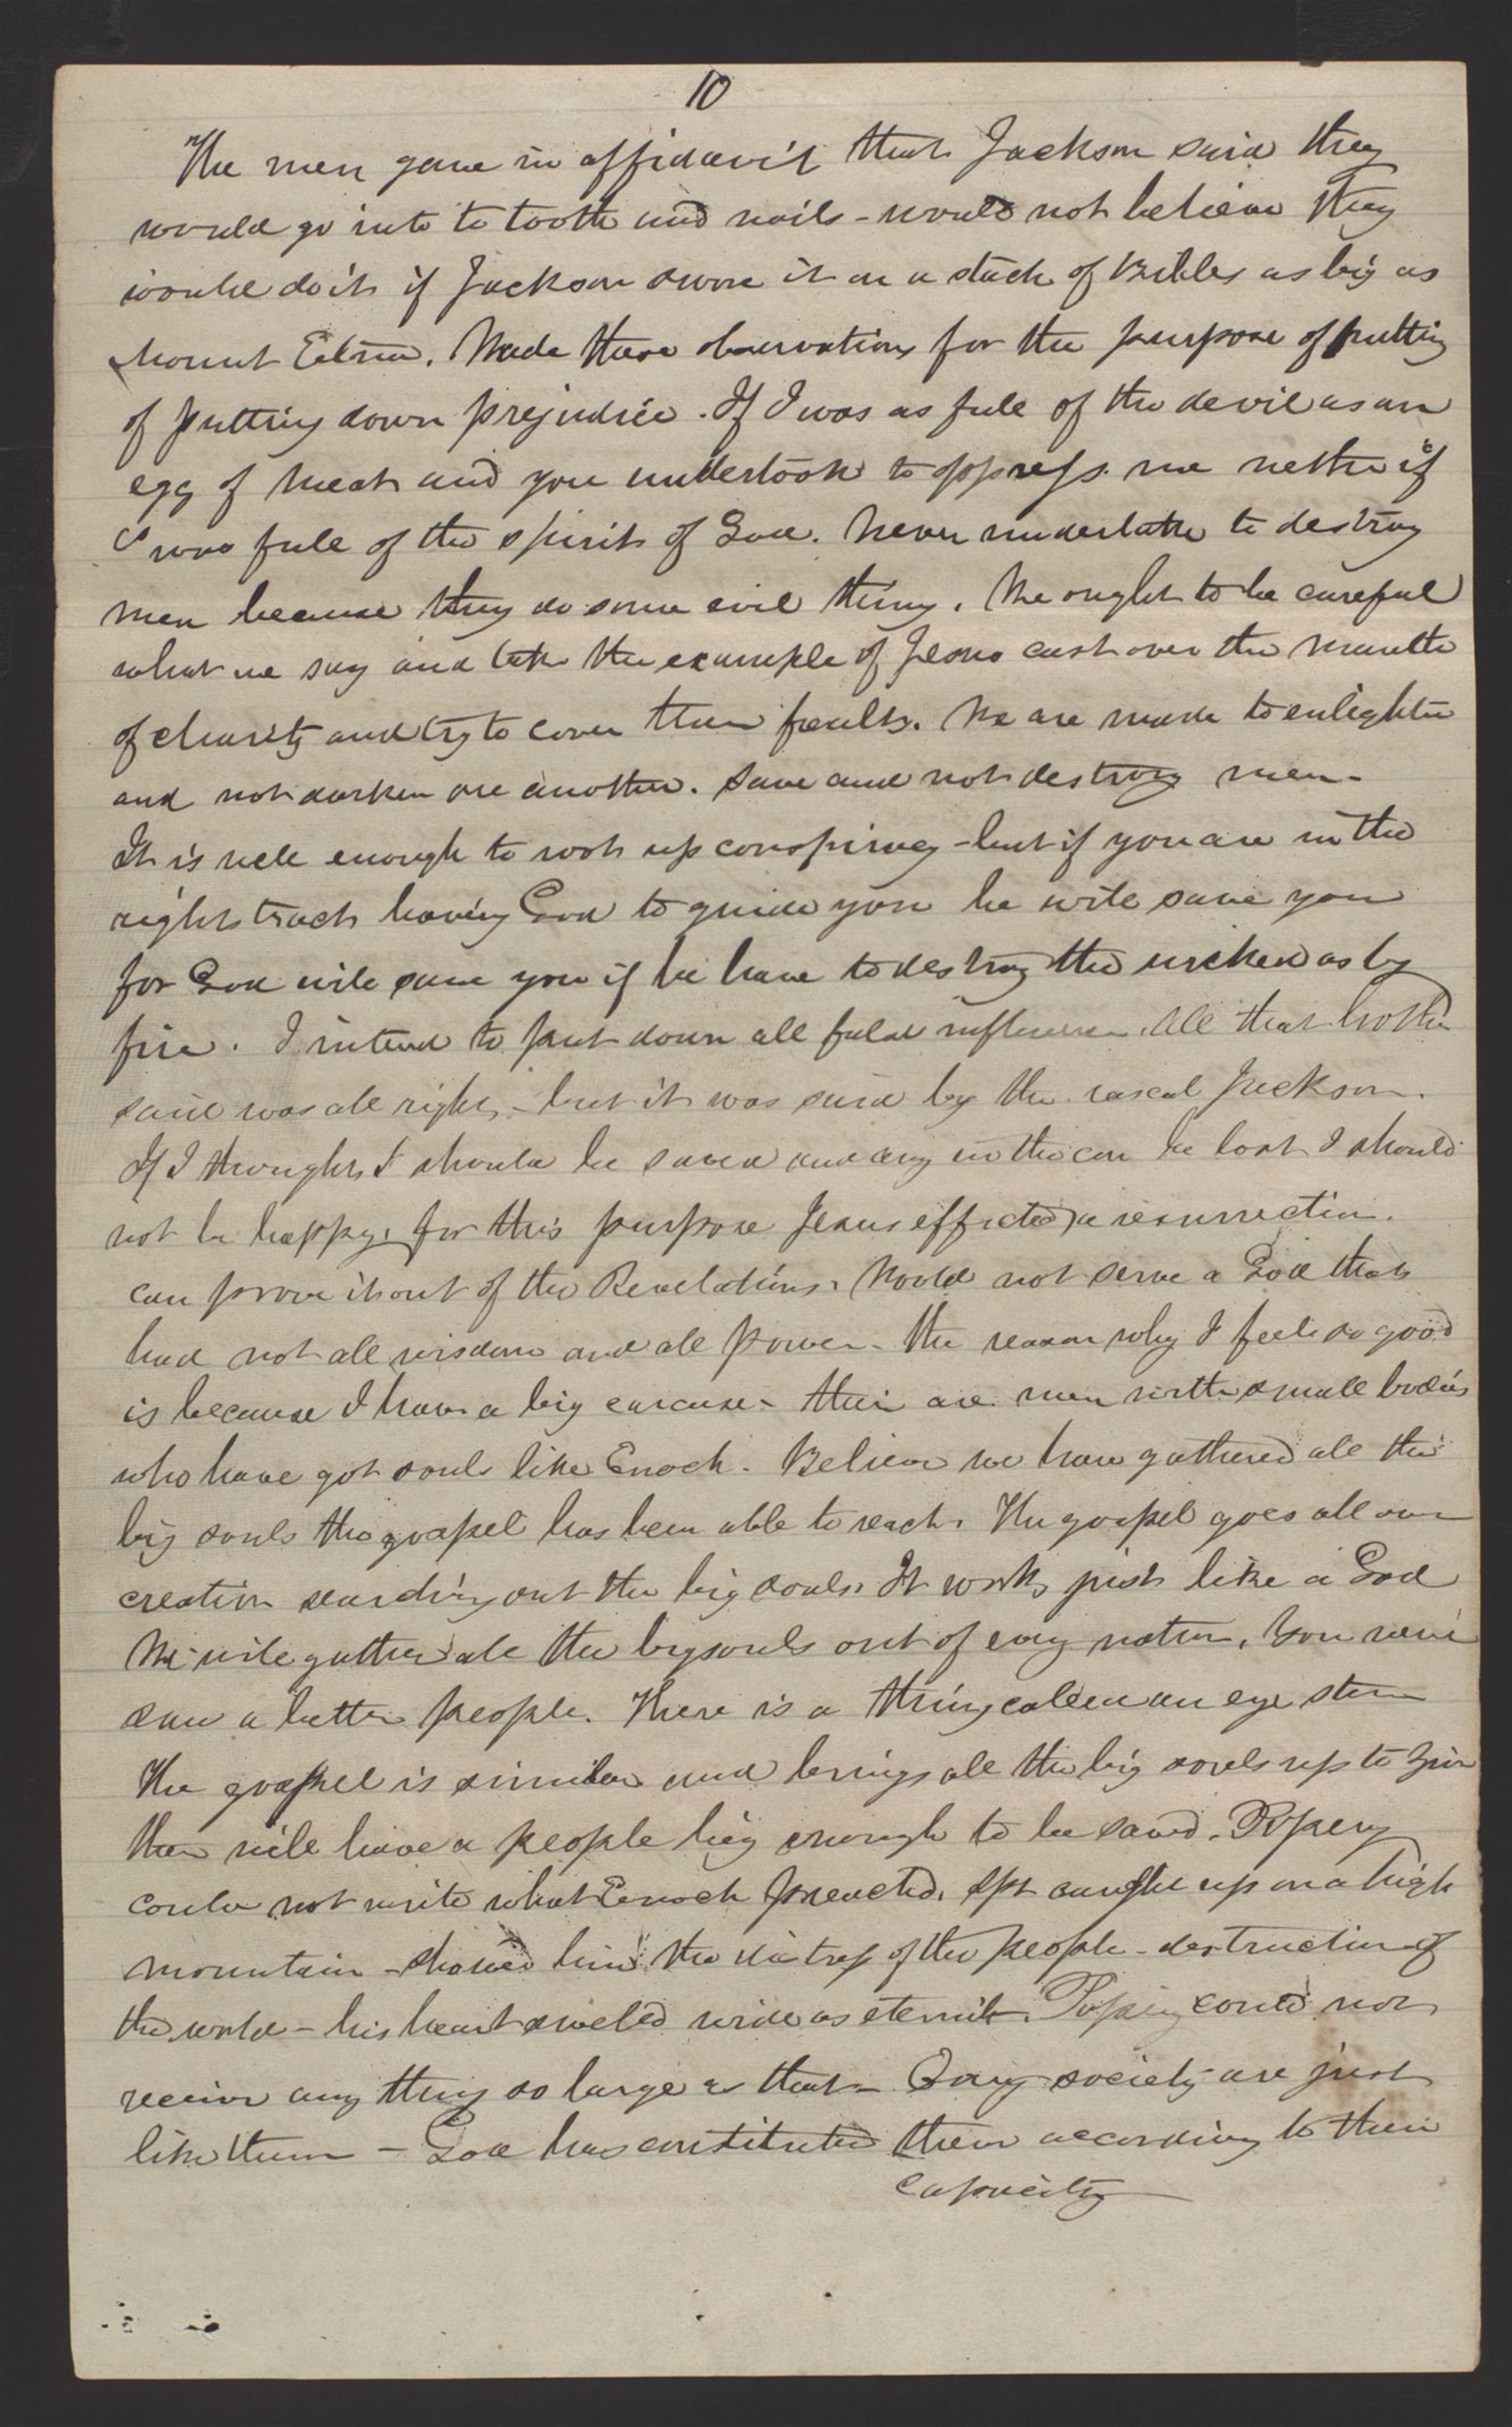 10
The men gave in affidavit that Jackson said they
would go into to tooth and nails - would not believe they
would do it if Jackson swore it on a stack of Bibles as big as
Mount Etna. Made these observations for the purpose of putting
of putting down prejudice. If I was as full of the devil as an
egg of meat and you undertook to oppress me neither if
I was full of the spirit of God. Never undertake to destroy
men because they do some evil thing. We ought to be careful
what we say and take the example of Jesus cast over the mantle
of charity and try to cover their faults. We are made to enlighten
and not darken one another. Save and not destroy men -
It is well enough to root up conspiracy - but if you are in the
right track having God to guide you he will save you
for God will save you if he have to destroy the wicked as by
fire. I intend to put down all false influence. All that brother
said was all right, - but it was said by the rascal Jackson.
If I thought I should be saved and any in the con be lost I should
not be happy, for this purpose Jesus effected a resurrection.
can prove it out of the Revelations. Would not serve a God that
had not all wisdom and all power. The reason why I feel so good
is because I have a big carcase - their are men with small bodies
who have got souls like Enoch. Believe we have gathered all the
big souls the gospel has been able to reach. The gospel goes all over
creation searching out the big souls. It works just like a God
We will gather all the big souls out of every nation. You never
saw a better people. There is a thing called an eye stone
The gospel is similar and brings all the big souls up to Zion
then will have a people big enough to be saved. Popery
could not write what Enoch preached. caught up on a high
mountain - showed him the distress of the people - destruction of
the world - his heart swelled wide as eternity. Popery could not
receive any thing so large as that - Every society are just
like them - God has constituted them according to their
capacity